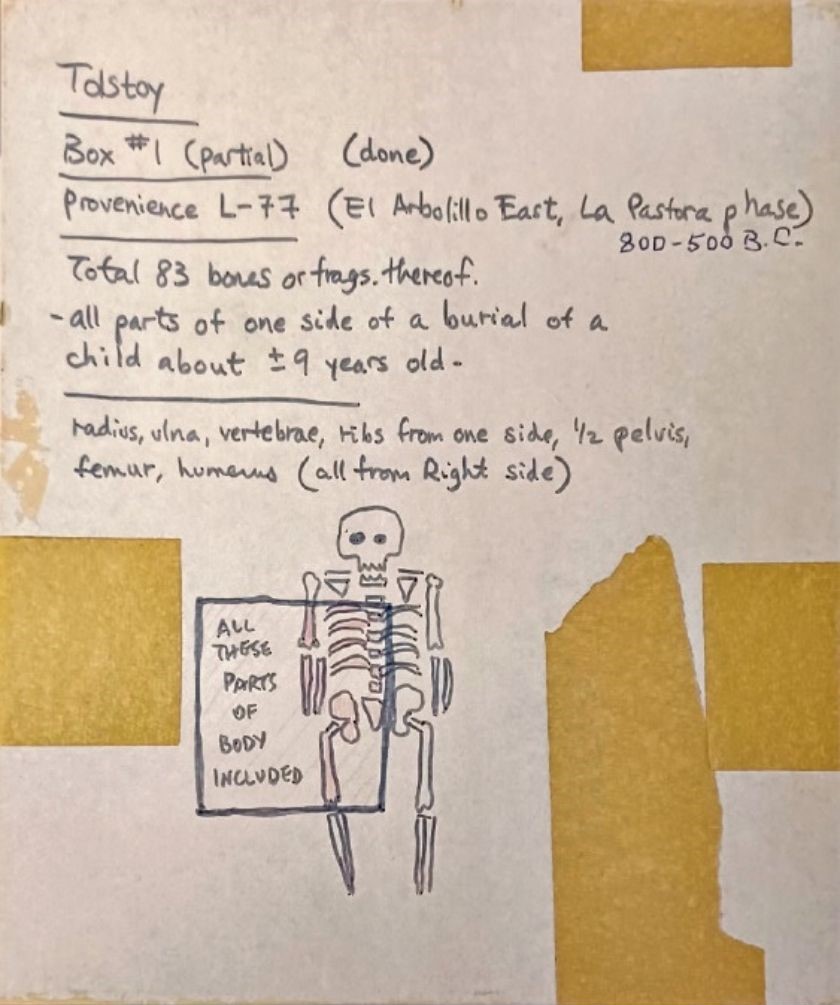 Tolstoy
Box #1 (partial) (done)
Provenience L-77 (El Arbolillo East, La Pastora phase)
800-500 B.C.
Total 83 bones or frags. thereof.
- all parts of one side of a burial of a
child about ± 9 years old -
radius, ulna, vertebrae, ribs from one side, 1/2 pelvis,
femur, humerus (all from Right side)
ALL
THESE
PARTS
OF
BODY
INCLUDED